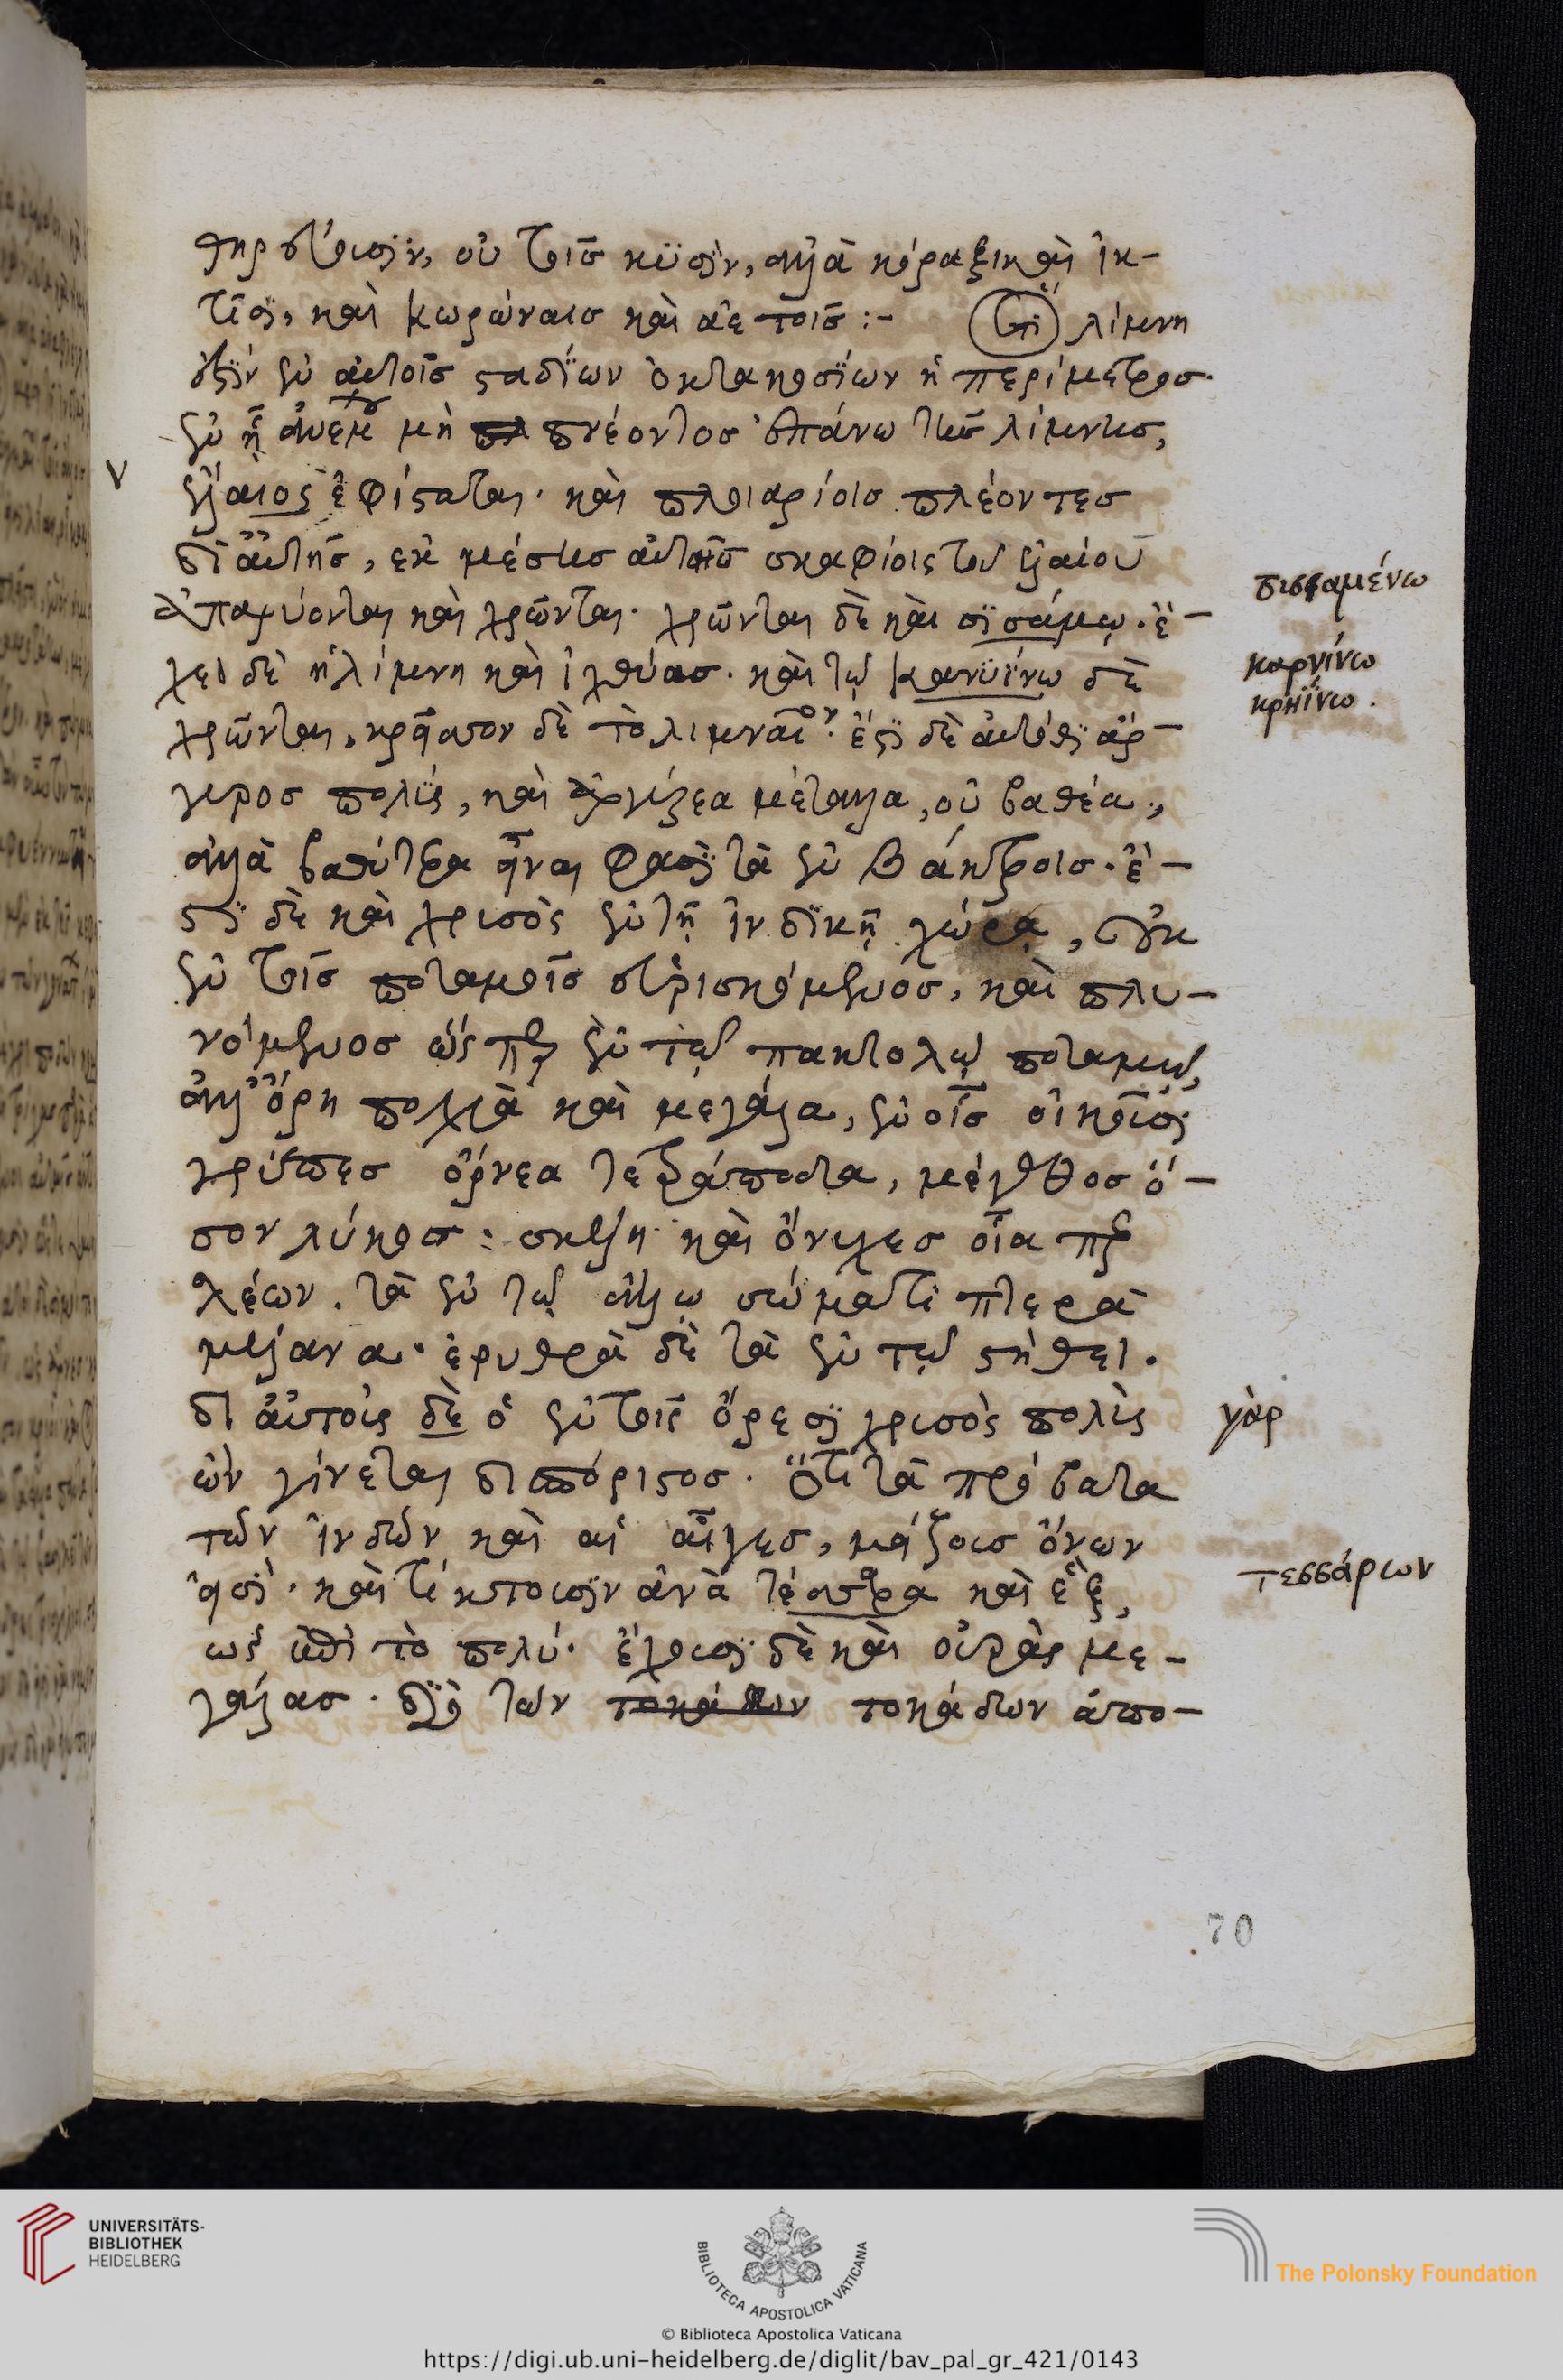 θηρεύουσιν, οὐ τοῖς κυσὶν, ἀλλὰ κόραξι καὶ ἰκ-
τῖσι, καὶ κωρώναις καὶ ἀετοῖς :- Ὅτι λίμνη
ἐστὶν ἐν αὐτοῖς σταδίων ὀκτακοσίων ἡ περίμετρος.
ἐν ᾗ ἀνέμου μὴ πνέοντος ἐπάνω τῆς λίμνης,
ἔλαιος ἐφίσταται. καὶ πλοιαρίοις πλέοντες
δι' αὐτῆς, ἐκ μέσης αὐτῆς σκαφίοις τοῦ ἐλαίου
ἀπαρύονται καὶ χρῶνται. χρῶνται δὲ καὶ σισάμῳ. ἔ-
χει δὲ ἡ λίμνη καὶ ἰχθύας. καὶ τῷ καρυΐνῳ δὲ
χρῶνται, κρεῖσσον δὲ τὸ λιμναῖον. ἔστι δὲ αὐτόθι ἄρ-
γυρος πολὺς, καὶ ἀργύρεα μέταλλα, οὐ βαθέα,
ἀλλὰ βαθύτερα εἶναι φασὶ τὰ ἐν Βάκτροις. ἔ-
στι δὲ καὶ χρυσὸς ἐν τῇ ἰνδικῇ χώρᾳ, οὐκ
ἐν τοῖς ποταμοῖς εὑρισκόμενος, καὶ πλυ-
νόμενος ὥσπερ ἐν τῷ πακτολῷ ποταμῷ,
ἀλλ' ὄρη πολλὰ καὶ μεγάλα, ἐν οἷς οἰκοῦσι
γρύπες ὄρνεα τετράποδα, μέγεθος ὅ-
σον λύκος: σκέλη καὶ ὄνυχες οἷάπερ
λέων. τὰ ἐν τῷ ἄλλῳ σώματι πτερὰ
μέλανα. ἐρυθρὰ δὲ τὰ ἐν τῷ στήθει.
δι αὐτοὺς δὲ ὁ ἐν τοῖς ὄρεσι χρυσὸς πολὺς
ὢν γίνεται δυσπόριστος. Ὅτι τὰ πρόβατα
τῶν ἰνδῶν καὶ αἱ αἶγες, μείζους ὄνων
εἰσί. καὶ τίκτουσιν ἀνὰ τέσσαρα καὶ ἓξ,
ὡς ἐπὶ τὸ πολύ. ἔχουσι δὲ καὶ οὐρὰς με-
γάλας. διὸ τῶν τοκάδων ἀπο-
πισσαμένω
καρνίνω
κρηΐνω.
γὰρ
τεσσάρων
70
UNIVERSITÄTS-
BIBLIOTHEK
HEIDELBERG
BIBLIOTECA APOSTOLICA VATICANA
The Polonsky Foundation
© Biblioteca Apostolica Vaticana
https://digi.ub.uni-heidelberg.de/diglit/bav_pal_gr_421/0143